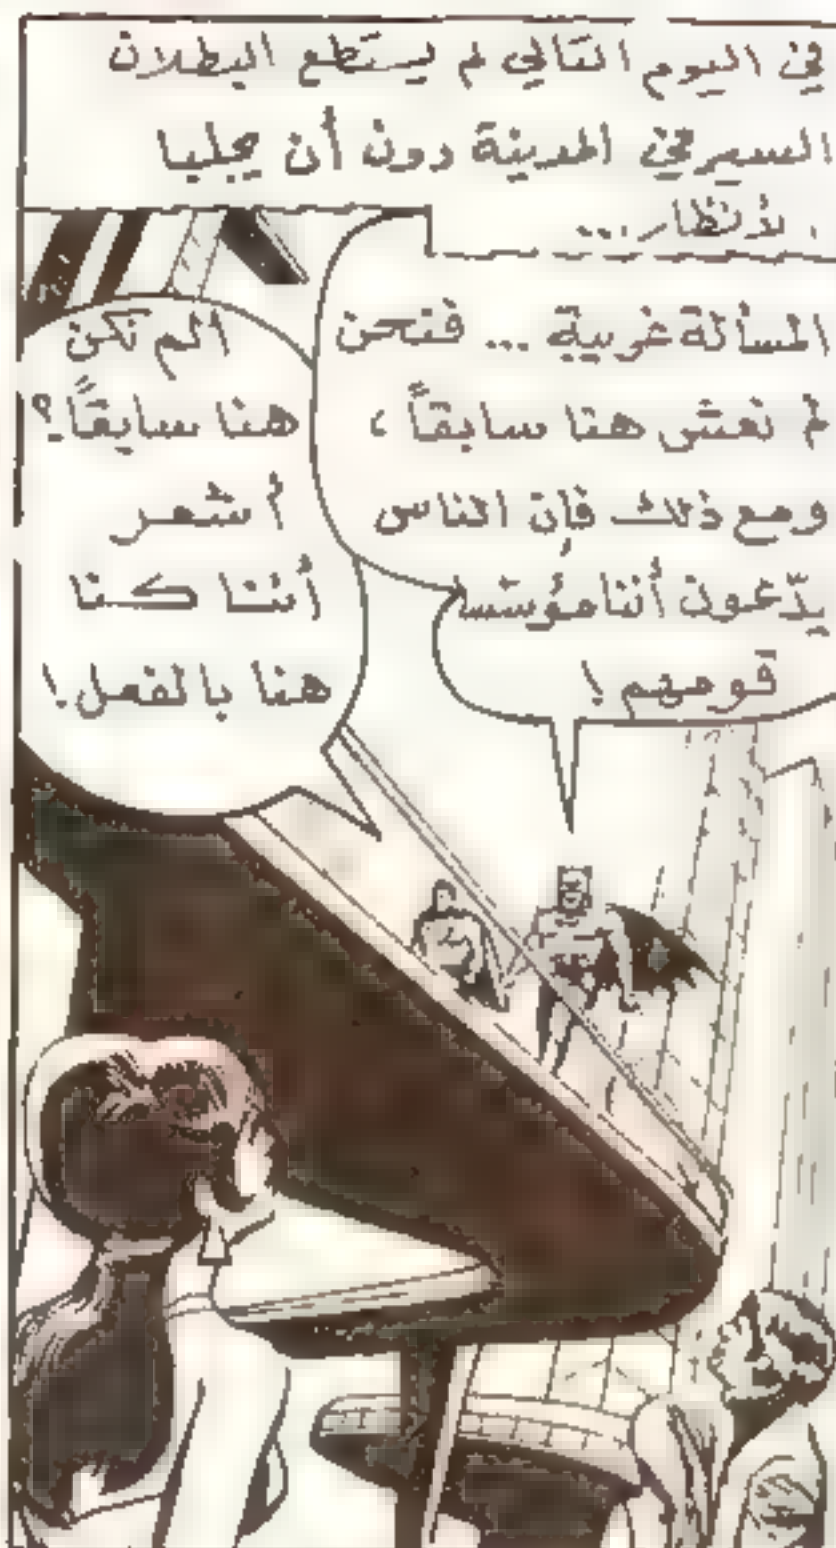 في اليوم التالي لم يستطع البطلان
السير في المدينة دون أن يجلبا
الأنظار...
المسألة غريبة ... فنحن
لم نعش هنا سابقاً ،
ومع ذلك فإن الناس
يدّعون أننا مؤسسا
قومهم !
ألم نكن
هنا سابقاً؟
أشعر
أننا كنا
هنا بالفعل !